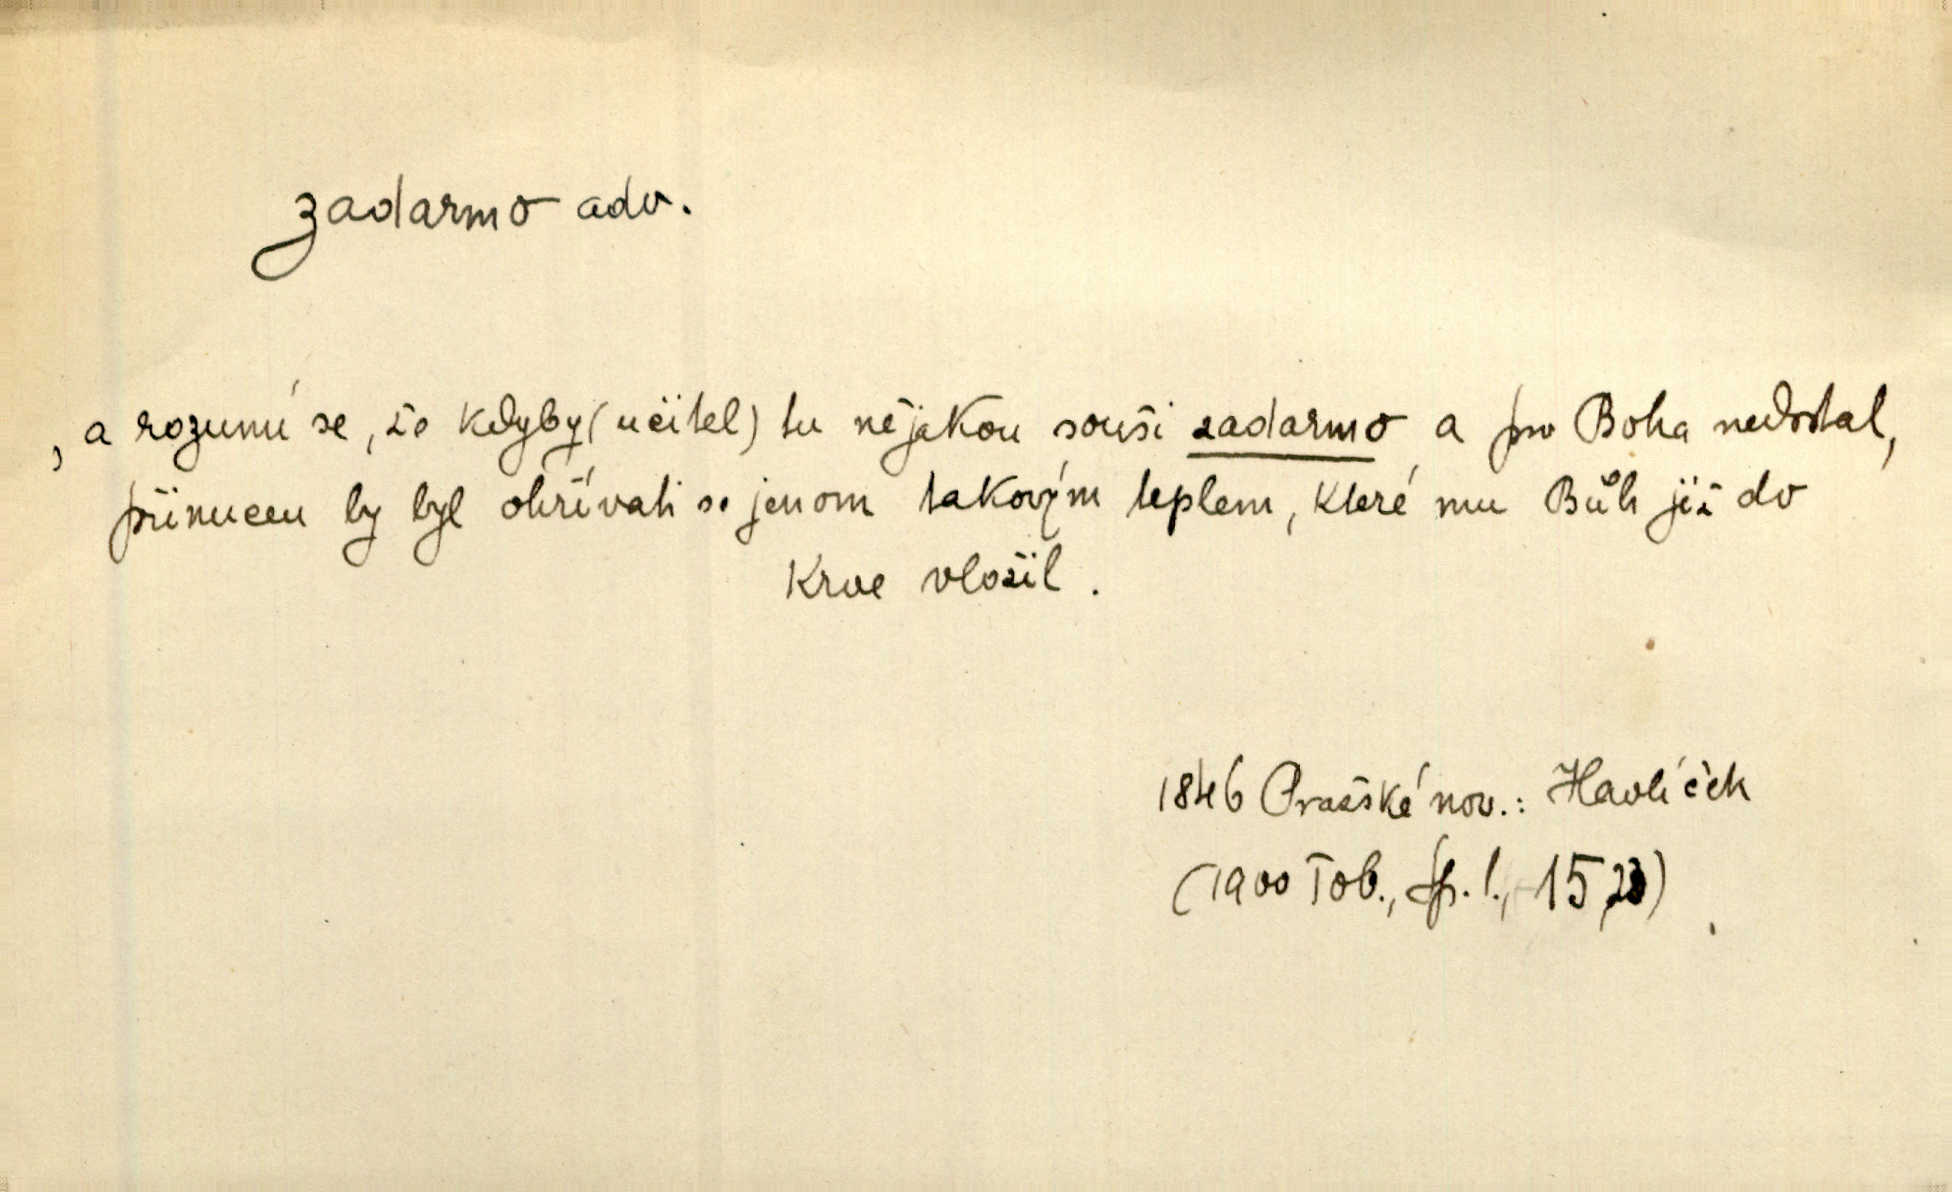 zadarmo adv.
, a rozumí se, že kdyby (učitel) tu nějakou souši zadarmo a pro Boha nedostal,
přinucen by byl ohřívati se jenom takovým teplem, které mu Bůh již do
krve vložil.
1846 Pražské nov.: Havlíček
(1900 Tob., sp. I., 15,